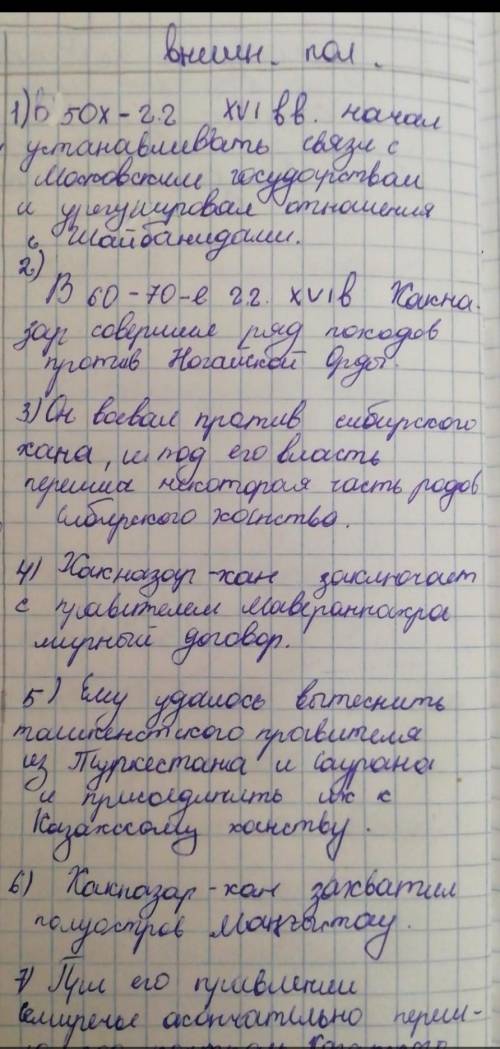 внешн. пол.
1) В 50х-г.г XVI вв. начал
устанавливать связи с
Московским государствам
и урегулировал отношения
с Шайбанидами.
2)
В 60-70-е г.г. XVI в Хакна-
зар совершил ряд походов
против Ногайской Орды.
3) Он воевал против сибирского
хана, и под его власть
перешла некоторая часть родов
Сибирского ханства.
4) Хакназар-хан заключает
с правителем Мавераннахра
мирный договор.
5) Ему удалось вытеснить
ташкентского правителя
из Туркестана и Саурана
и присоединить их к
Казахскому ханству.
6) Хакназар-хан захватил
полуостров Маңғыстау.
7) При его правлении
Семиречье